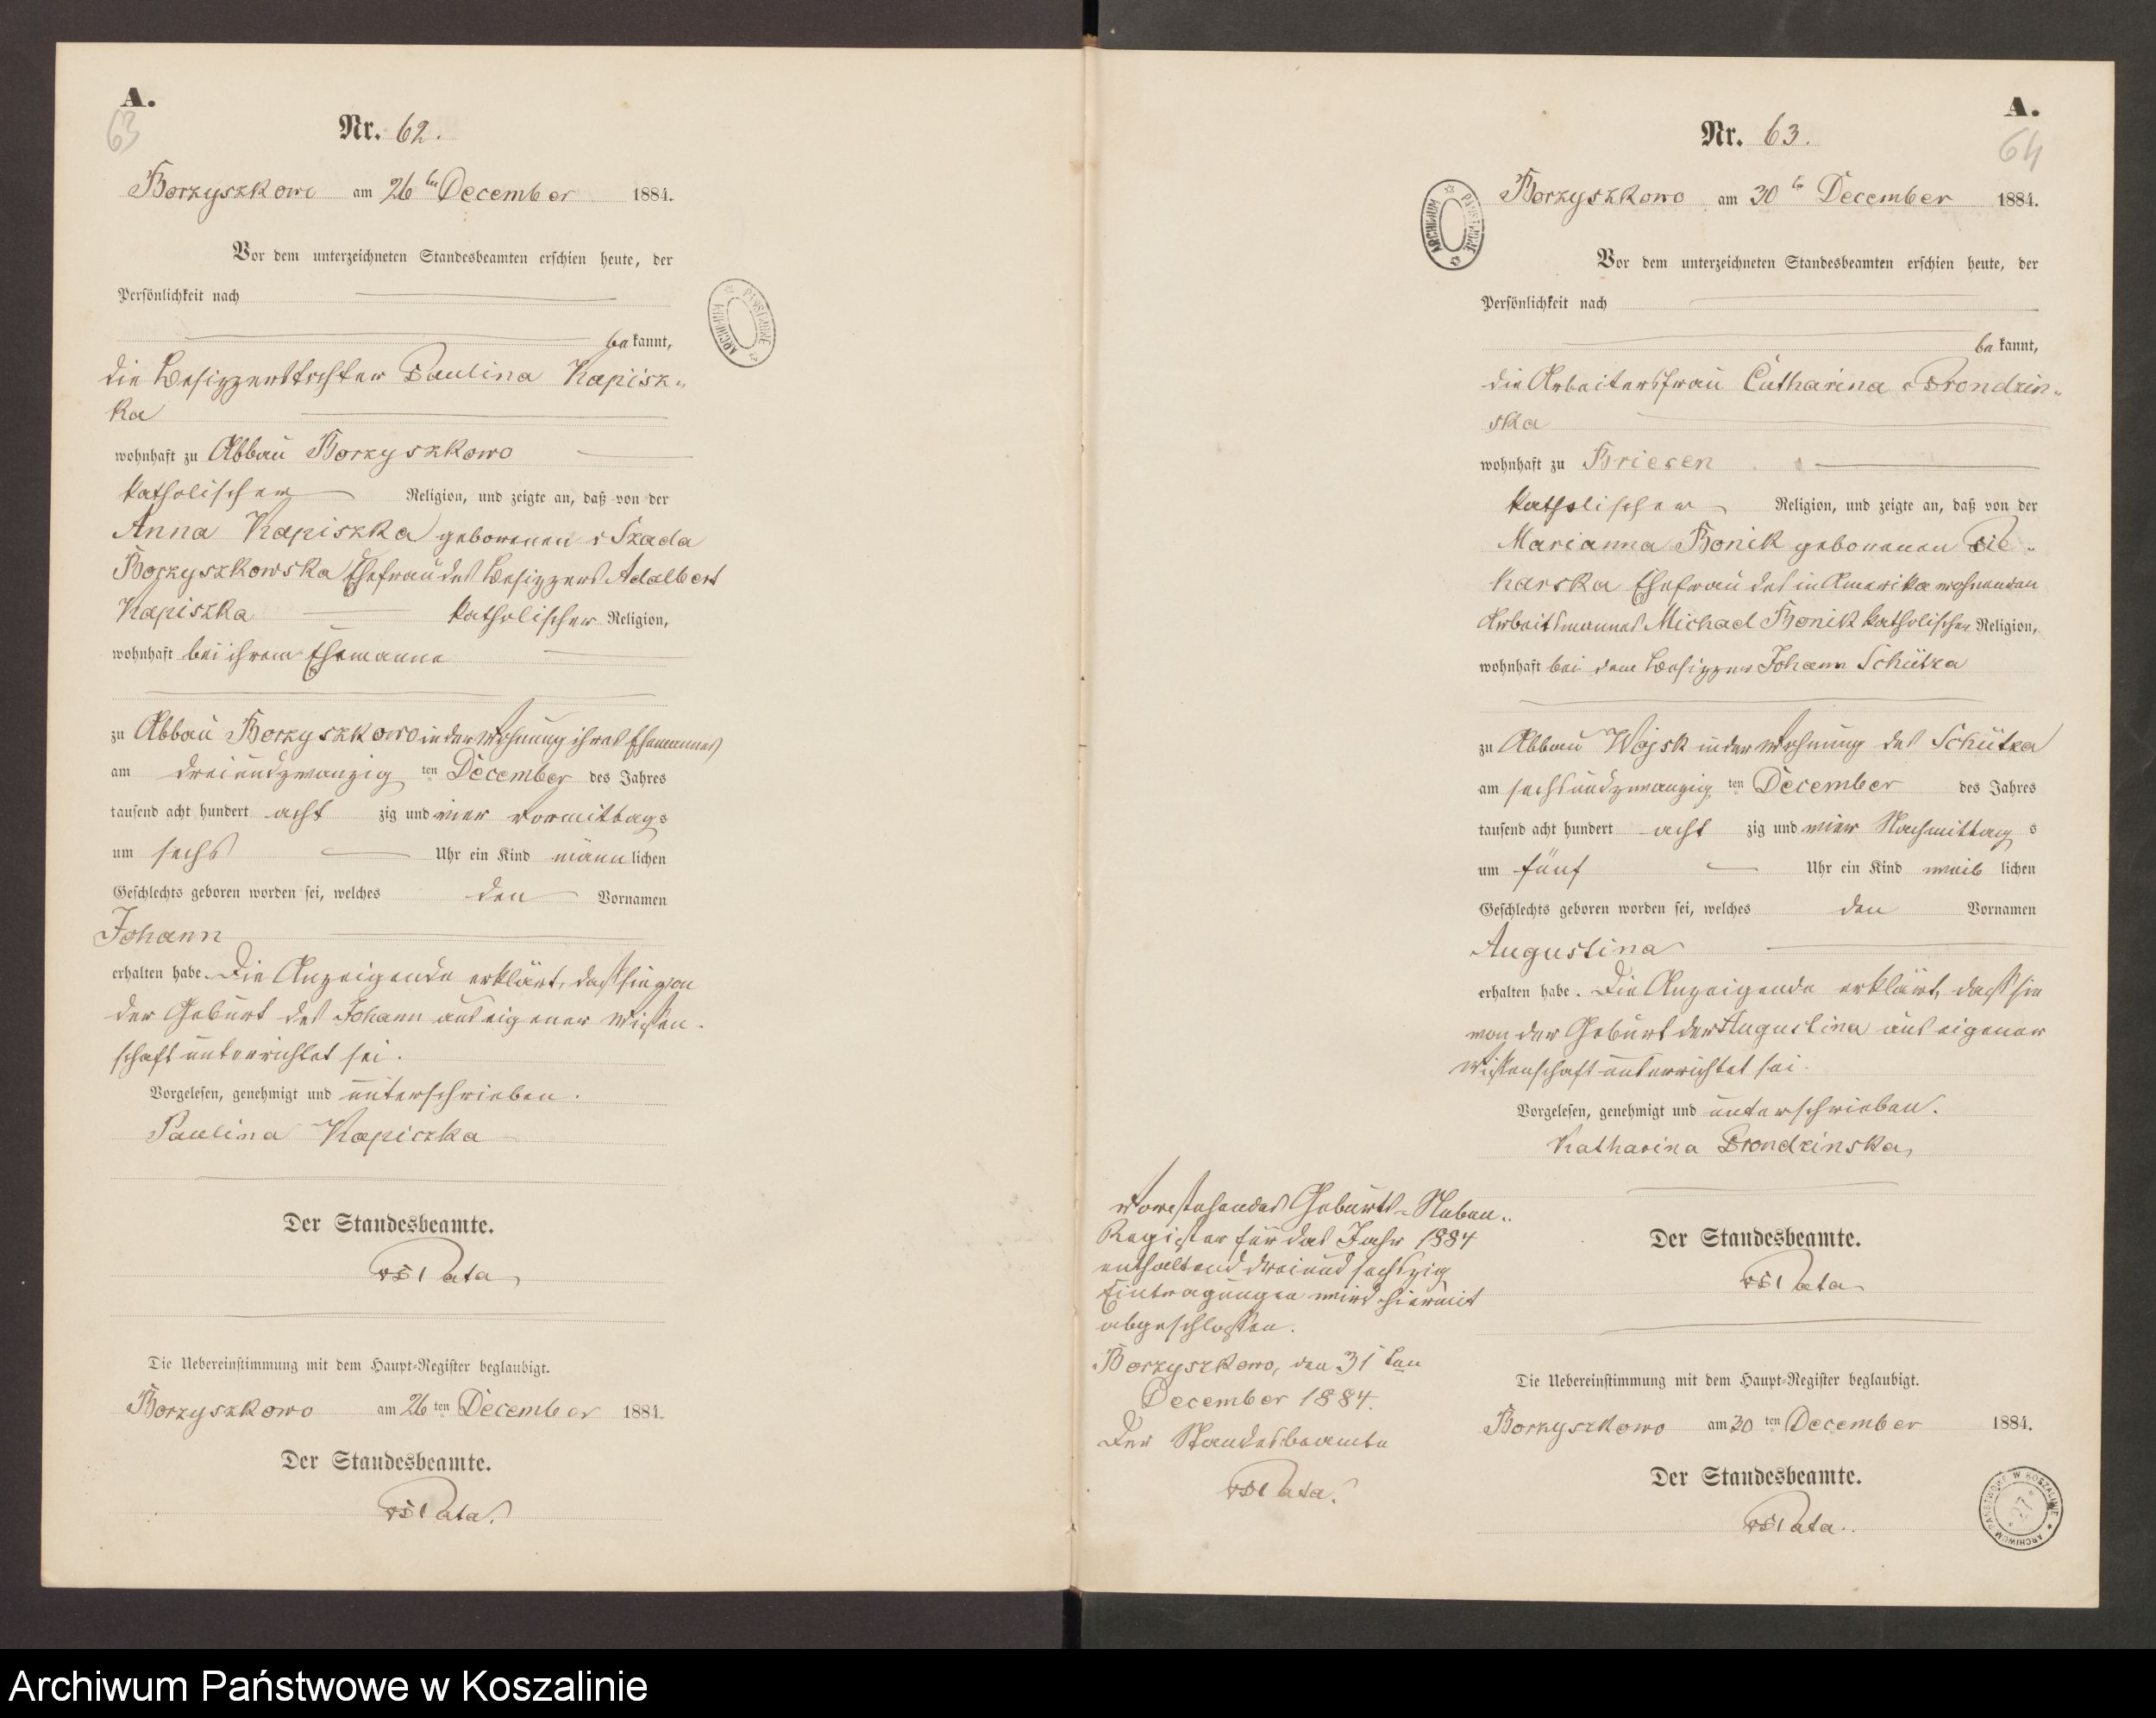 A.
63
Nr. 62.
Borzyszkowo am 26ten December 1884.
Vor dem unterzeichneten Standesbeamten erschien heute, der
Persönlichkeit nach
bekannt,
die Besitzerstochter Paulina Kapisz-
ka
wohnhaft zu Abbau Borzyszkowo
katholischer Religion, und zeigte an, daß von der
Anna Kapiszka geborenen Szada
Borzyszkowska Ehefrau des Besitzers Adalbert
Kapiszka katholischer Religion,
wohnhaft bei ihrem Ehemanne
zu Abbau Borzyszkowo in der Wohnung ihres Ehemannes
am dreiundzwanzig ten December des Jahres
tausend acht hundert acht zig und vier Vormittags
um sechs Uhr ein Kind männlichen
Geschlechts geboren worden sei, welches den Vornamen
Johann
erhalten habe. Die Anzeigende erklärt, daß sie von
der Geburt des Johann aus eigener Wissen-
schaft unterrichtet sei.
Vorgelesen, genehmigt und unterschrieben.
Paulina Kapiczka
Der Standesbeamte.
Pata
Die Uebereinstimmung mit dem Haupt-Register beglaubigt.
Borzyszkowo am 26 ten December 1884.
Der Standesbeamte.
Pata.
ARCHIWUM PAŃSTWOWE
A.
64
Nr. 63.
Borzyszkowo am 30ten December 1884.
Vor dem unterzeichneten Standesbeamten erschien heute, der
Persönlichkeit nach
bekannt,
die Arbeiterfrau Catharina Prondzin-
ska
wohnhaft zu Briesen
katholischer Religion, und zeigte an, daß von der
Marianna Bonik geborenen Pie-
karska Ehefrau des in Amerika wohnenden
Arbeitsmannes Michael Bonik katholischer Religion,
wohnhaft bei dem Besitzer Johann Schütza
zu Abbau Wojsk in der Wohnung des Schütza
am sechsundzwanzig ten December des Jahres
tausend acht hundert acht zig und vier Nachmittags
um fünf Uhr ein Kind weiblichen
Geschlechts geboren worden sei, welches den Vornamen
Augustina
erhalten habe. Die Anzeigende erklärt, daß sie
von der Geburt der Augustina aus eigener
Wissenschaft unterrichtet sei.
Vorgelesen, genehmigt und unterschrieben.
Katharina Prondzinska
Der Standesbeamte.
Pata
Die Uebereinstimmung mit dem Haupt-Register beglaubigt.
Borzyszkowo am 30 ten December 1884.
Der Standesbeamte.
Pata.
Vorstehendes Geburts-Neben-
Register für das Jahr 1884
enthaltend dreiundsechszig
Eintragungen wird hiermit
abgeschlossen.
Borzyszkowo, den 31ten
December 1884.
Der Standesbeamte
Pata.
ARCHIWUM PAŃSTWOWE
ARCHIWUM PAŃSTWOWE W KOSZALINIE
27
Archiwum Państwowe w Koszalinie